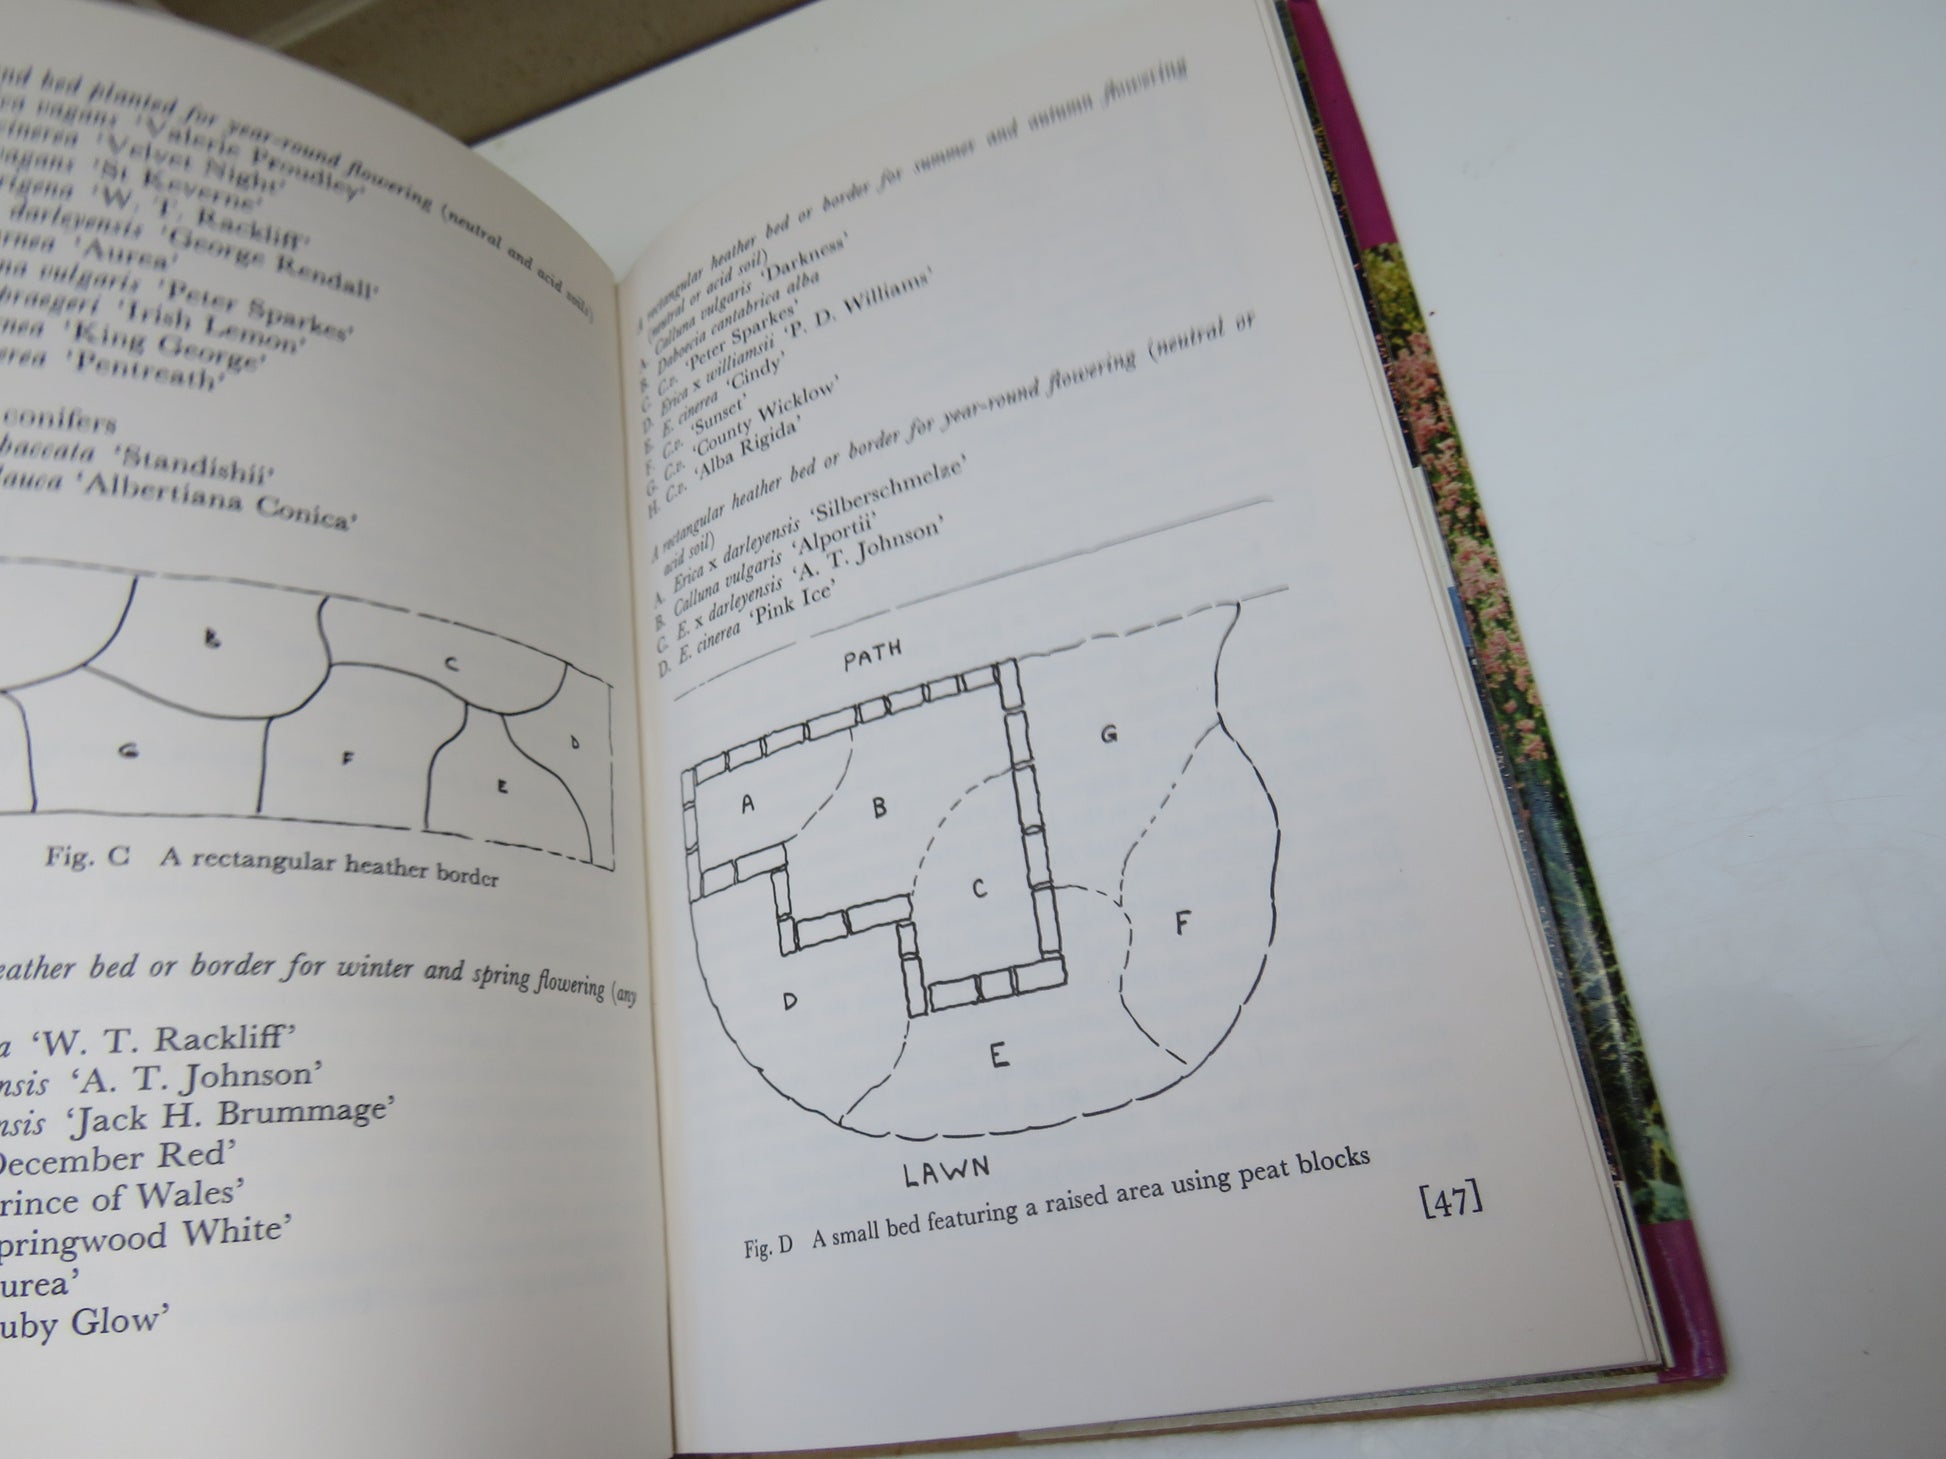 nd bed planted for year-round flowering (neutral and acid soils)
vagans 'Valerie Proudley'
cinerea 'Velvet Night'
vagans 'St Keverne'
rigena 'W. T. Rackliff'
darleyensis 'George Rendall'
rnea 'Aurea'
na vulgaris 'Peter Sparkes'
praegeri 'Irish Lemon'
nea 'King George'
erea 'Pentreath'
conifers
baccata 'Standishii'
lauca 'Albertiana Conica'
B
C
G
F
E
D
Fig. C A rectangular heather border
eather bed or border for winter and spring flowering (any
a 'W. T. Rackliff'
nsis 'A. T. Johnson'
nsis 'Jack H. Brummage'
December Red'
rince of Wales'
pringwood White'
urea'
uby Glow'
A rectangular heather bed or border for summer and autumn flowering
(neutral or acid soil)
A. Calluna vulgaris 'Darkness'
B. Daboecia cantabrica alba
C. C.v. 'Peter Sparkes'
D. Erica x williamsii 'P. D. Williams'
E. E. cinerea 'Cindy'
F. C.v. 'Sunset'
G. C.v. 'County Wicklow'
H. C.v. 'Alba Rigida'
A rectangular heather bed or border for year-round flowering (neutral or
acid soil)
A. Erica x darleyensis 'Silberschmelze'
B. Calluna vulgaris 'Alportii'
C. E. x darleyensis 'A. T. Johnson'
D. E. cinerea 'Pink Ice'
PATH
A
B
C
D
E
F
G
LAWN
Fig. D A small bed featuring a raised area using peat blocks
[47]